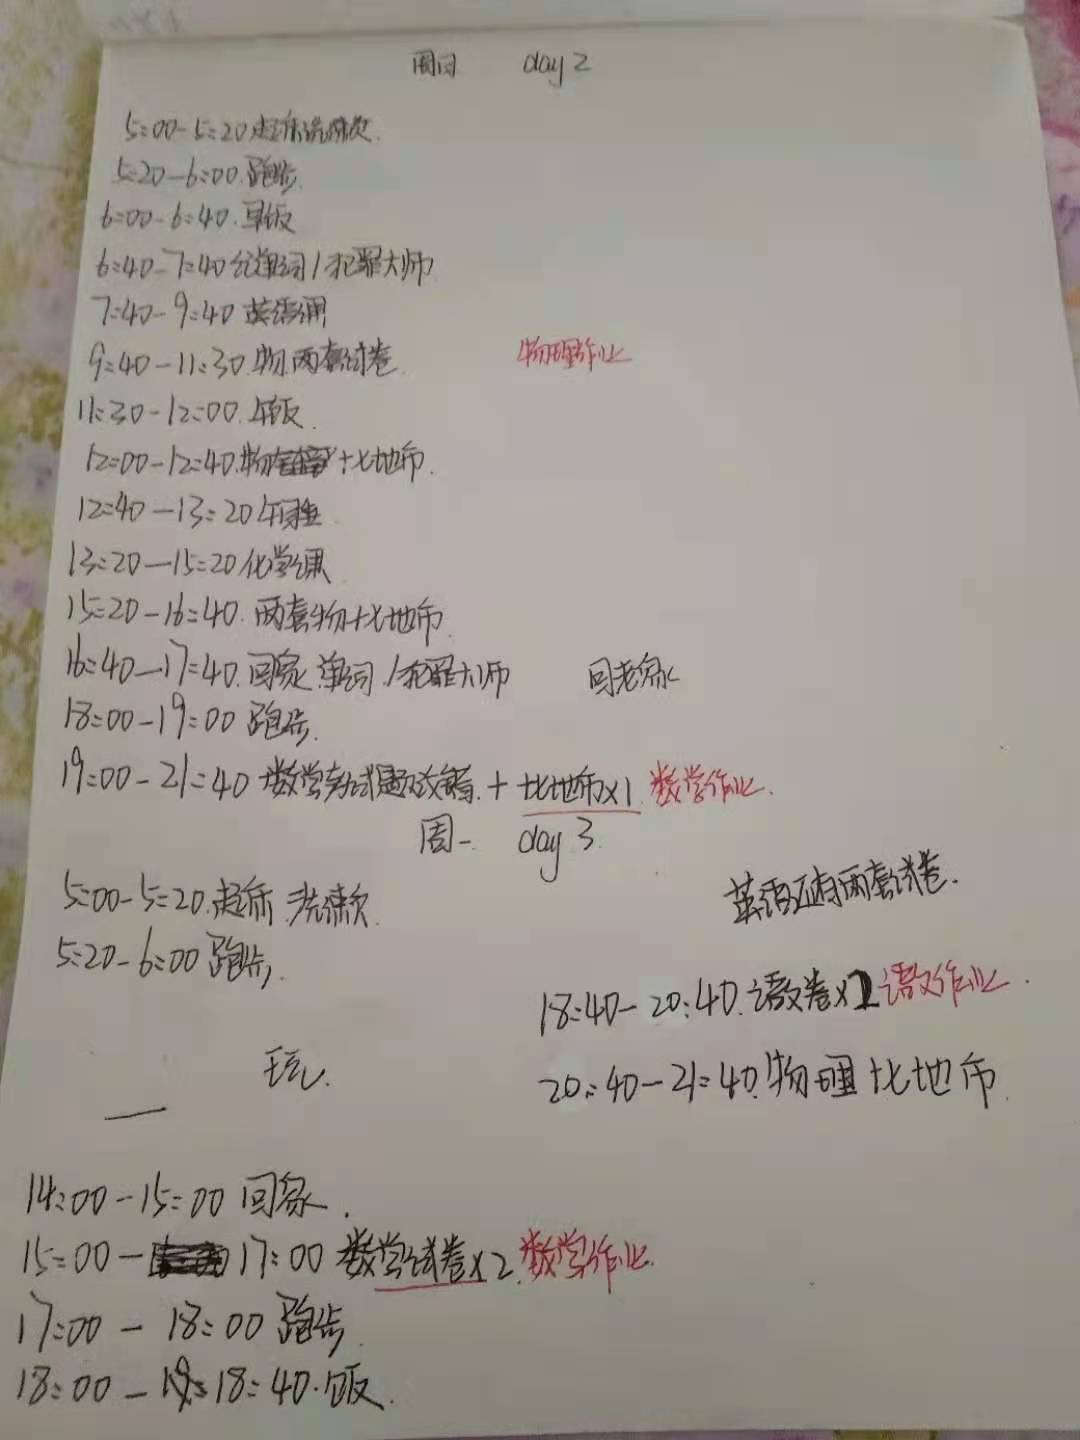 周日 day 2
5:00-5:20起床洗漱
5:20-6:00.跑步.
6:00-6:40.早饭
6:40-7:40 单词/犯罪大师
7:40-9:40 英语课
9:40-11:30.物.两套试卷. 物理作业
11:30-12:00.午饭.
12:00-12:40.物 +比地币.
12:40-13:20午睡.
13:20-15:20化学课
15:20-16:40.两套物+比地币.
16:40-17:40.回家.单词/犯罪大师 回老家
18:00-19:00 跑步.
19:00-21:40 数学 改错.+比地币×1.数学作业.
周一. day 3.
5:00-5:20.起床.洗漱.
5:20-6:00跑步.
英语还有两套试卷.
18:40-20:40.语文卷×2语文作业.
20:40-21:40.物理+比地币.
玩.
14:00-15:00 回家.
15:00-17:00 数学试卷×2.数学作业.
17:00-18:00跑步.
18:00-18:40.饭.